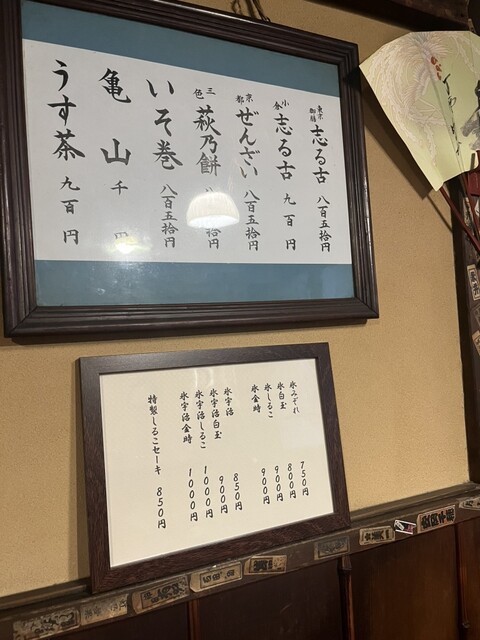 東京御膳 志る古 八百五拾円
小倉 志る古 九百円
京都 ぜんざい 八百五拾円
三色 萩乃餅 拾円
いそ巻 八百五拾円
亀山 千円
うす茶 九百円
氷みぞれ 750円
氷白玉 800円
氷しるこ 900円
氷金時 900円
氷宇治 850円
氷宇治白玉 900円
氷宇治しるこ 1000円
氷宇治金時 1000円
特製しるこセーキ 850円